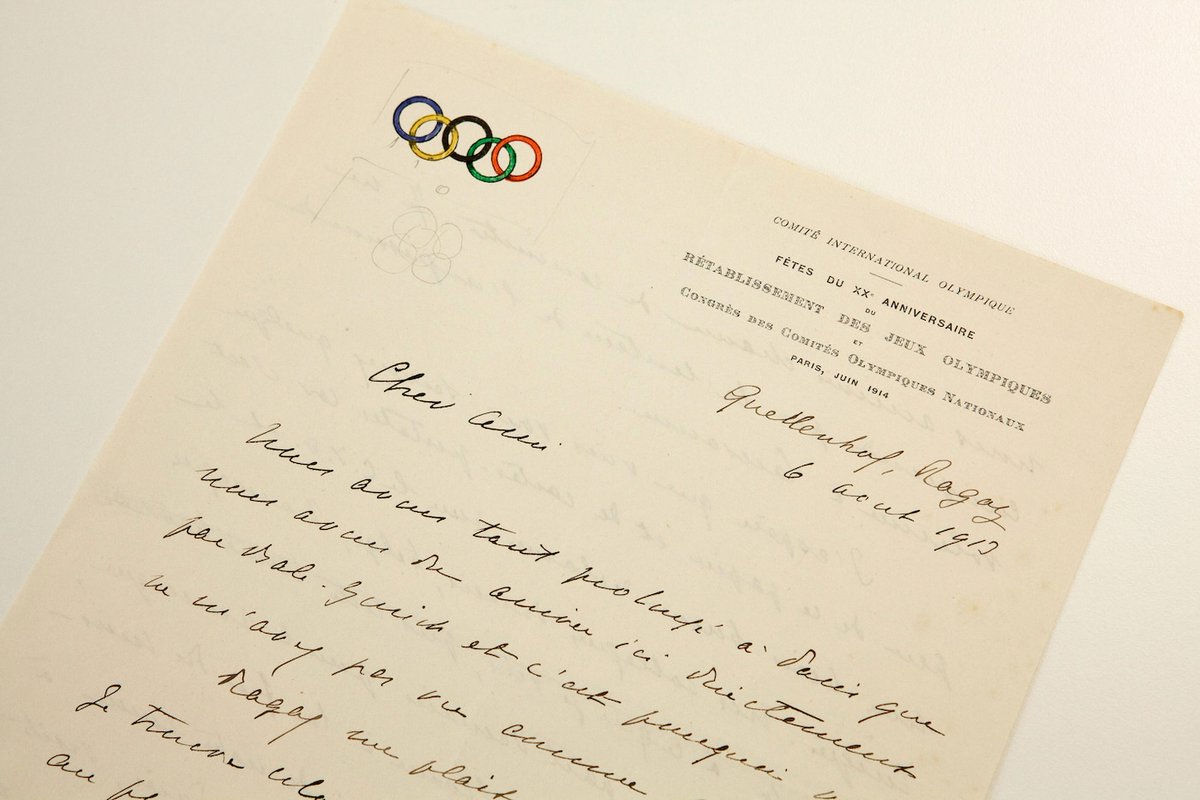 COMITÉ INTERNATIONAL OLYMPIQUE
FÊTES DU XXe ANNIVERSAIRE
DU
RÉTABLISSEMENT DES JEUX OLYMPIQUES
ET
CONGRÈS DES COMITÉS OLYMPIQUES NATIONAUX
PARIS, JUIN 1914
Quellenhof, Ragaz
6 aout 1913
Cher ami
Nous avons tant prolongé à Paris que
nous avons du arriver ici directement
par Bale-Zurich et c'est pourquoi v
ne m'avez pas vu comme
Ragaz me plait
Je trouve
au